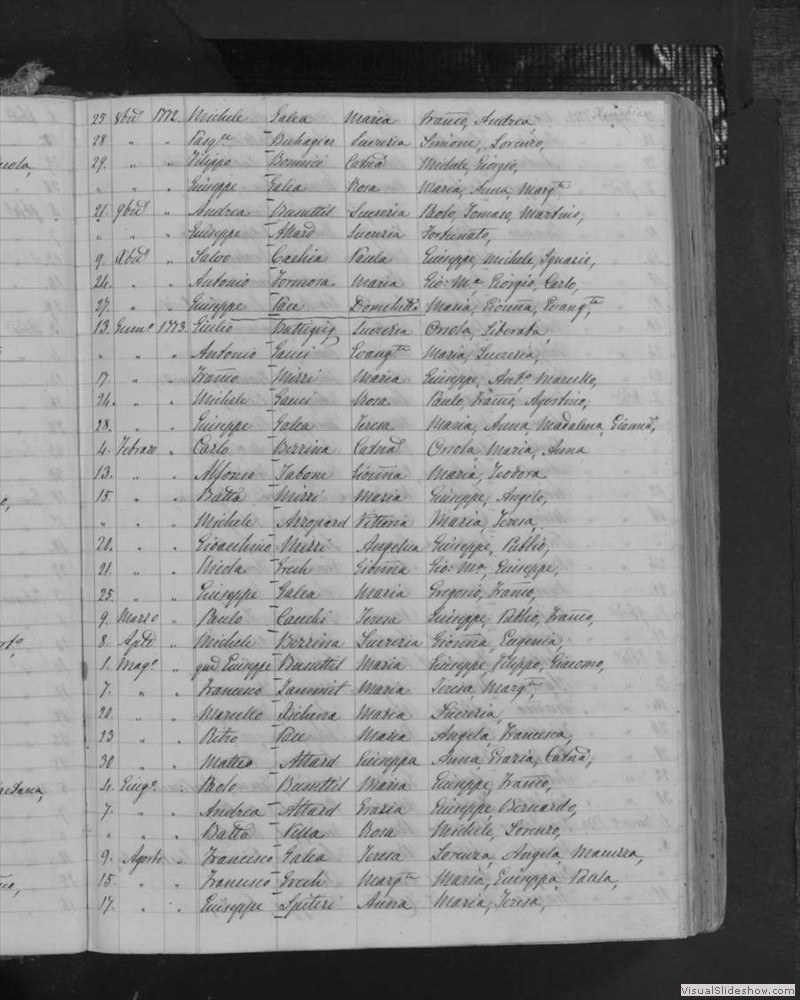 25 8bre 1772 Michele Galea Maria Franco, Andrea,
28 " " Pasqle Buhagiar Lucrezia Simone, Lorenzo,
rola, 29. " " Filippo Bonnici Catna Michele, Giorgio,
" " " Giuseppe Galea Rosa Maria, Anna, Margta
21. 9bre " Andrea Busuttil Lucrezia Paolo, Tomaso, Martino,
" " " Giuseppe Attard Lucrezia Fortunato,
9. Xbre " Salvo Cachia Paola Giuseppe, Michele, Ignazio,
24. " " Antonio Formosa Maria Gio: Ma Giorgio, Carlo,
27. " " Giuseppe Pace Domchilla Maria, Gionna, Evangta,
13. Genno 1773. Giulio Buttigieg Lucrezia Orsola, Liberata,
" " " Antonio Gauci Evangta Maria, Lucrezia,
17. " " Franco Mizzi Maria Giuseppe, Anto Marcello,
24. " " Michele Gauci Rosa Paulo, Franco, Agostino,
28. " " Giuseppe Galea Teresa Maria, Anna Madalena, Gionna,
4. Febraro " Carlo Bezzina Catna Orsola, Maria, Anna
13. " " Alfonso Tabone Gionna Maria, Teodora
15. " " Batta Mizzi Maria Giuseppe, Angelo,
" " " Michele Azzopard Vittoria Maria, Teresa,
20. " " Gioachino Mizzi Angelica Giuseppe, Publio,
21. " " Nicola Grech Gionna Gio: Ma, Giuseppe,
25. " " Giuseppe Galea Maria Gregorio, Franco,
9. Marzo " Paulo Cauchi Teresa Giuseppe, Publio, Franco,
8. Aple " Michele Bezzina Lucrezia Gionna, Eugenia,
1. Mago " qm Giuseppe Busuttil Maria Giuseppe, Filippo, Giacomo,
7. " " Francesco Zammit Maria Teresa, Margta,
20. " " Marcello Xicluna Maria Lucrezia,
23 " " Pietro Pace Maria Angela, Francesca,
30 " " Matteo Attard Giuseppa Anna, Grazia, Catna,
4. Giugo " Paolo Busuttil Maria Giuseppe, Franco,
7. " " Andrea Attard Grazia Giuseppe, Bernardo,
" " " Batta Vella Rosa Michele, Lorenzo,
9. Agosto " Francesco Galea Teresa Lorenza, Angela, Maruzza,
15. " " Francesco Grech Margta Maria, Giuseppa, Paula,
17. " " Giuseppe Spiteri Anna Maria, Teresa,
VisualSlideshow.com